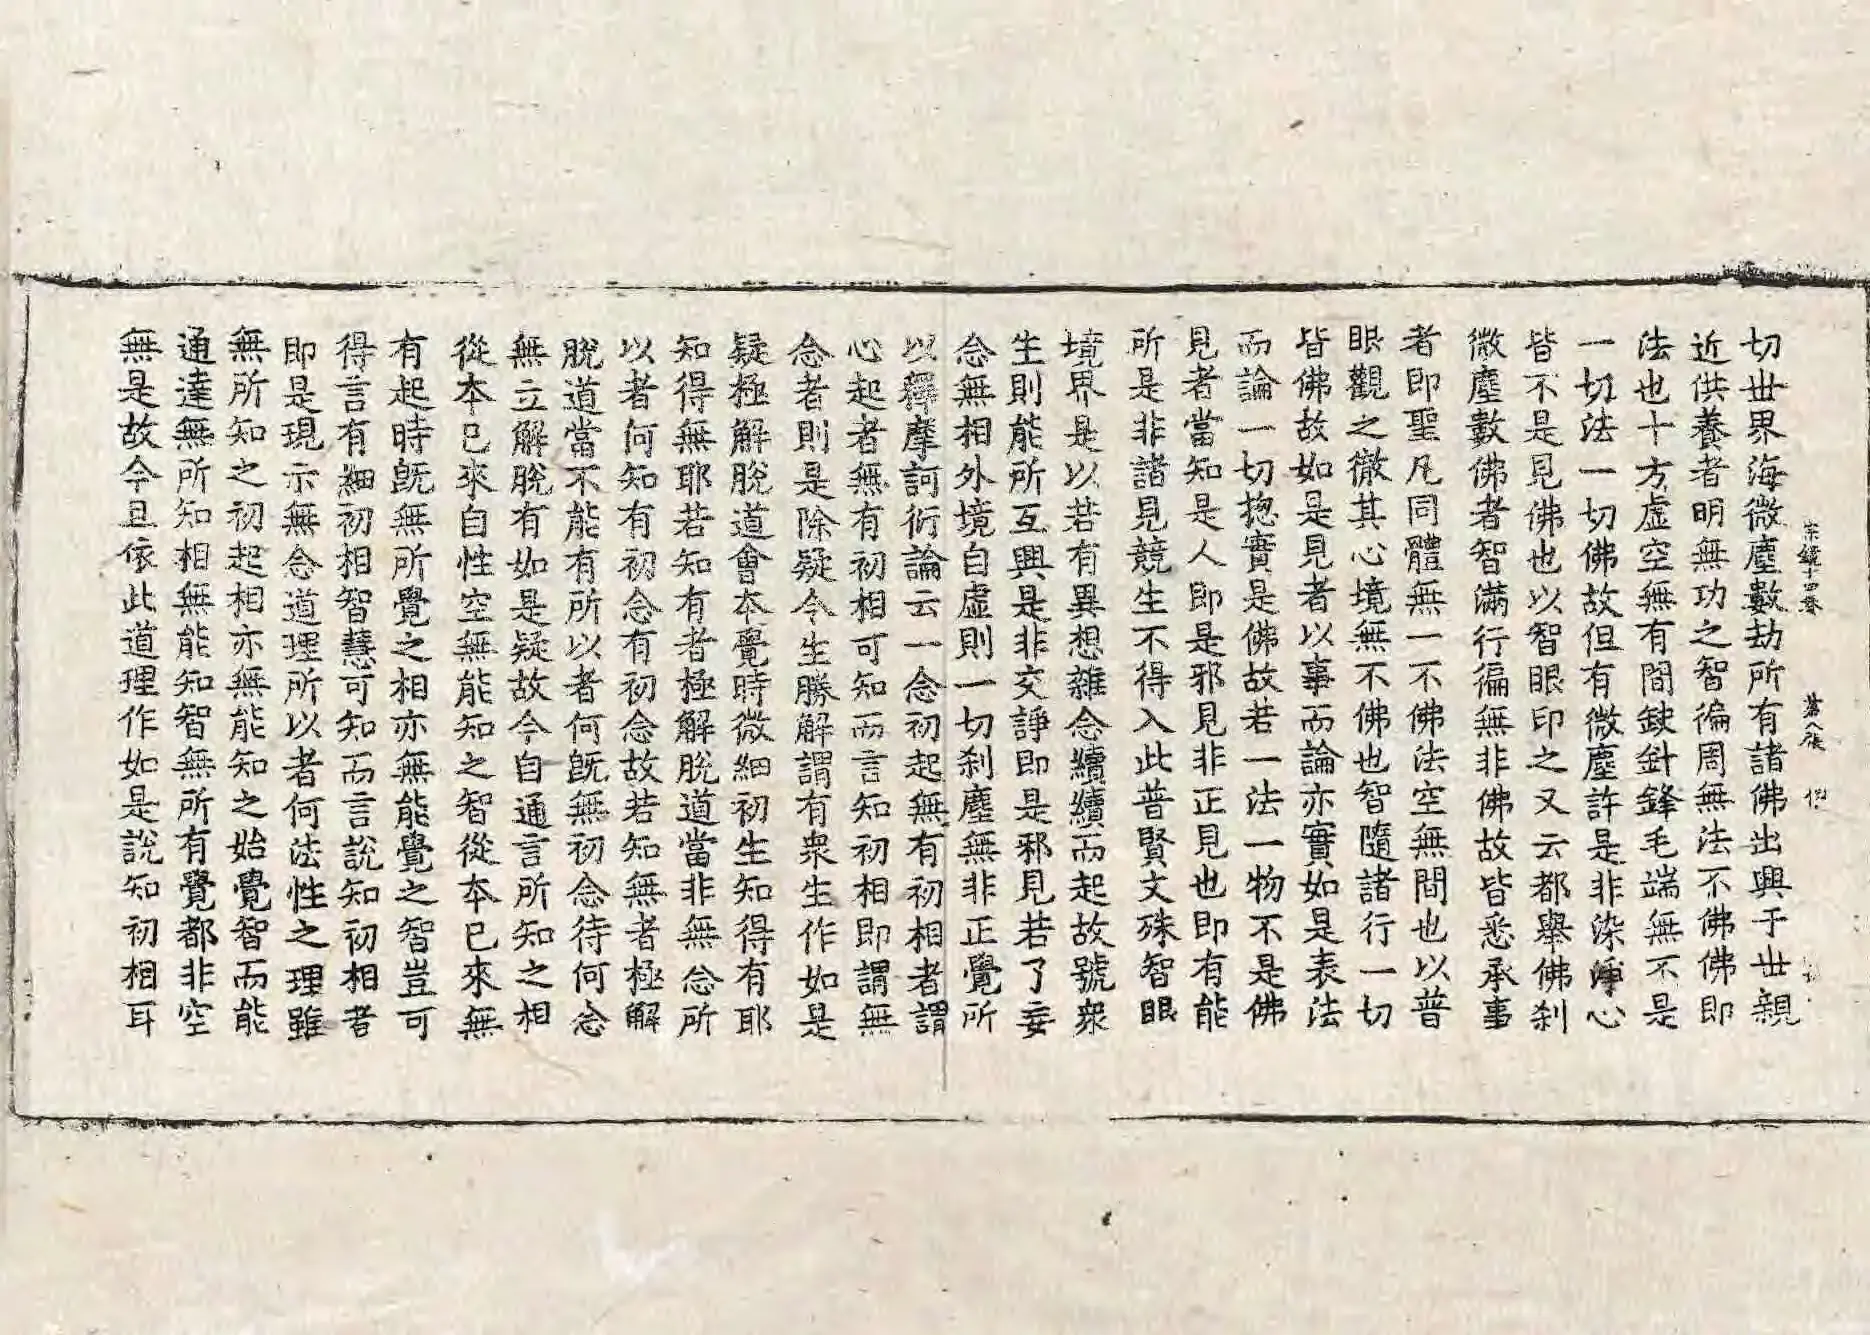 宗鏡十四卷 第八張
切世界海微塵數劫所有諸佛出興于世親
近供養者明無功之智徧周無法不佛佛即
法也十方虛空無有間缺針鋒毛端無不是
一切法一切佛故但有微塵許是非染淨心
皆不是見佛也以智眼印之又云都舉佛刹
微塵數佛者智滿行徧無非佛故皆悉承事
者即聖凡同體無一不佛法空無間也以普
眼觀之徹其心境無不佛也智隨諸行一切
皆佛故如是見者以事而論亦實如是表法
而論一切揔實是佛故若一法一物不是佛
見者當知是人即是邪見非正見也即有能
所是非諸見競生不得入此普賢文殊智眼
境界是以若有異想雜念續續而起故號衆
生則能所互興是非交諍即是邪見若了妄
念無相外境自虛則一切刹塵無非正覺所
以釋摩訶衍論云一念初起無有初相者謂
心起者無有初相可知而言知初相即謂無
念者則是除疑令生勝解謂有衆生作如是
疑極解脫道會本覺時微細初生知得有耶
知得無耶若知有者極解脫道當非無念所
以者何知有初念有初念故若知無者極解
脫道當不能有所以者何旣無初念待何念
無立解脫有如是疑故今自通言所知之相
從本已來自性空無能知之智從本已來無
有起時旣無所覺之相亦無能覺之智豈可
得言有細初相智慧可知而言說知初相者
即是現示無念道理所以者何法性之理雖
無所知之初起相亦無能知之始覺智而能
通達無所知相無能知智無所有覺都非空
無是故今且依此道理作如是說知初相耳